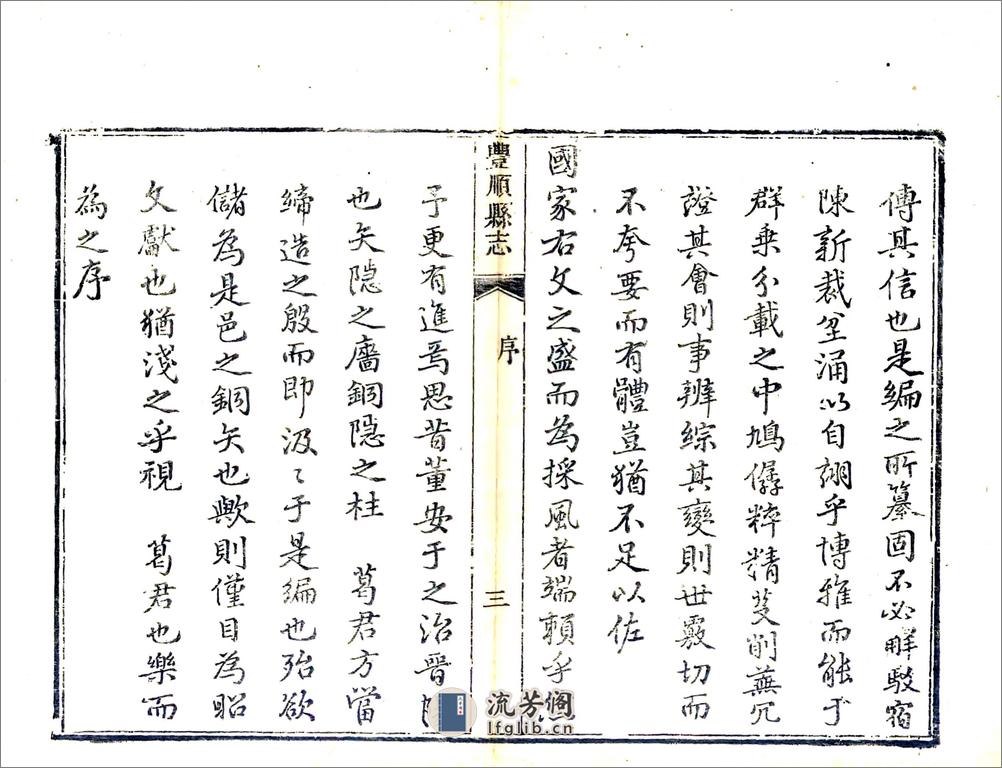 傳其信也是編之所纂固不必解駁宿
陳新裁坌涌以自翊乎博雅而能于
群乘分載之中鳩僝粹精芟削蕪冗
證其會則事辨綜其變則世覈切而
不夸要而有體豈猶不足以佐
國家右文之盛而為採風者端賴乎
豐順縣志
序
三
予更有進焉思昔董安于之治晉
也矢隱之廧銅隱之柱　葛君方當
締造之殷而即汲〻于是編也殆欲
儲為是邑之銅矢也歟則僅目為昭
文獻也猶淺之乎視　葛君也樂而
為之序
流芳閣
lfglib.cn